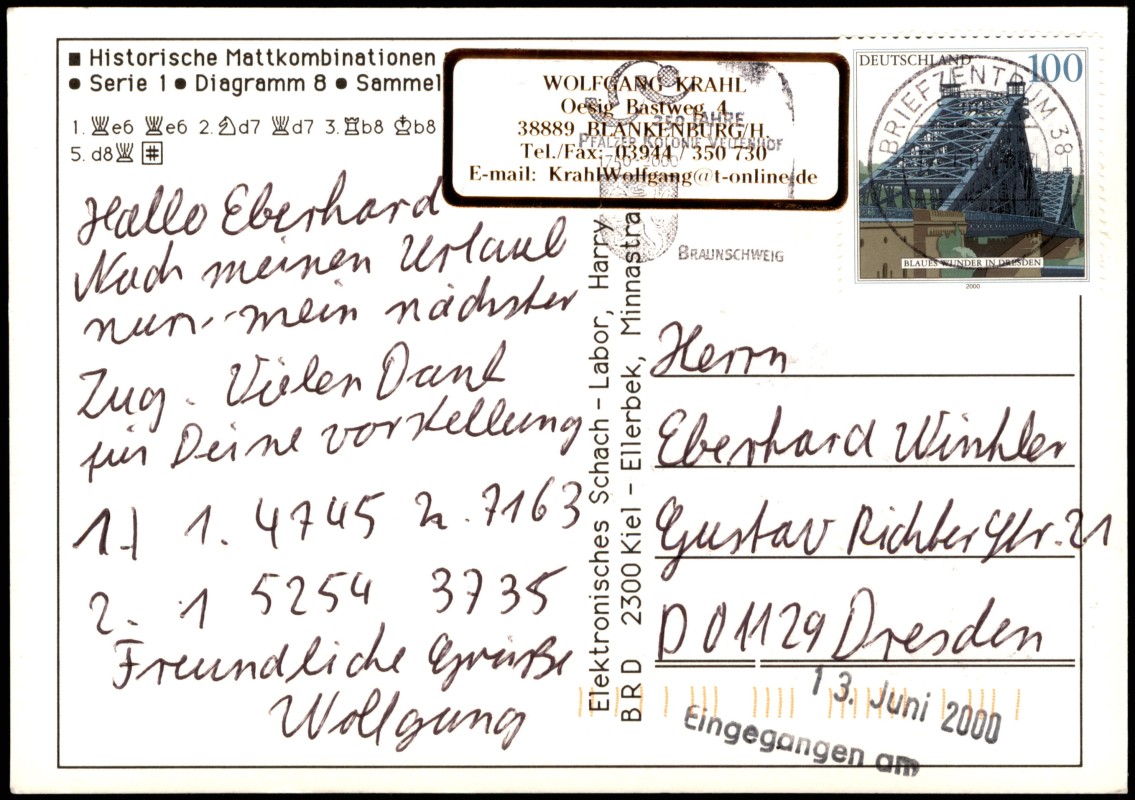 ■ Historische Mattkombinationen
● Serie 1 ● Diagramm 8 ● Sammel
1. ♕e6 ♕e6 2. ♘d7 ♕d7 3. ♖b8 ♔b8
5. d8♕ #
WOLFGANG KRAHL
Oesig Bastweg 4
38889 BLANKENBURG/H.
Tel./Fax: 03944 / 350 730
E-mail: KrahlWolfgang@t-online.de
250 JAHRE
PFÄLZER KOLONIE VELTENHOF
1750-2000
BRAUNSCHWEIG
DEUTSCHLAND 100
BRIEFZENTRUM 38
BLAUES WUNDER IN DRESDEN
2000
Hallo Eberhard
Nach meinen Urlaub
nun mein nächster
Zug. Vielen Dank
für Deine vorstellung
1) 1. 4745 2. 7163
2. 1 5254 3735
Freundliche Grüße
Wolfgang
Elektronisches Schach-Labor, Harry
BRD 2300 Kiel - Ellerbek, Minnastra
Herrn
Eberhard Winkler
Gustav Richter Str. 21
D 01129 Dresden
13. Juni 2000
Eingegangen am